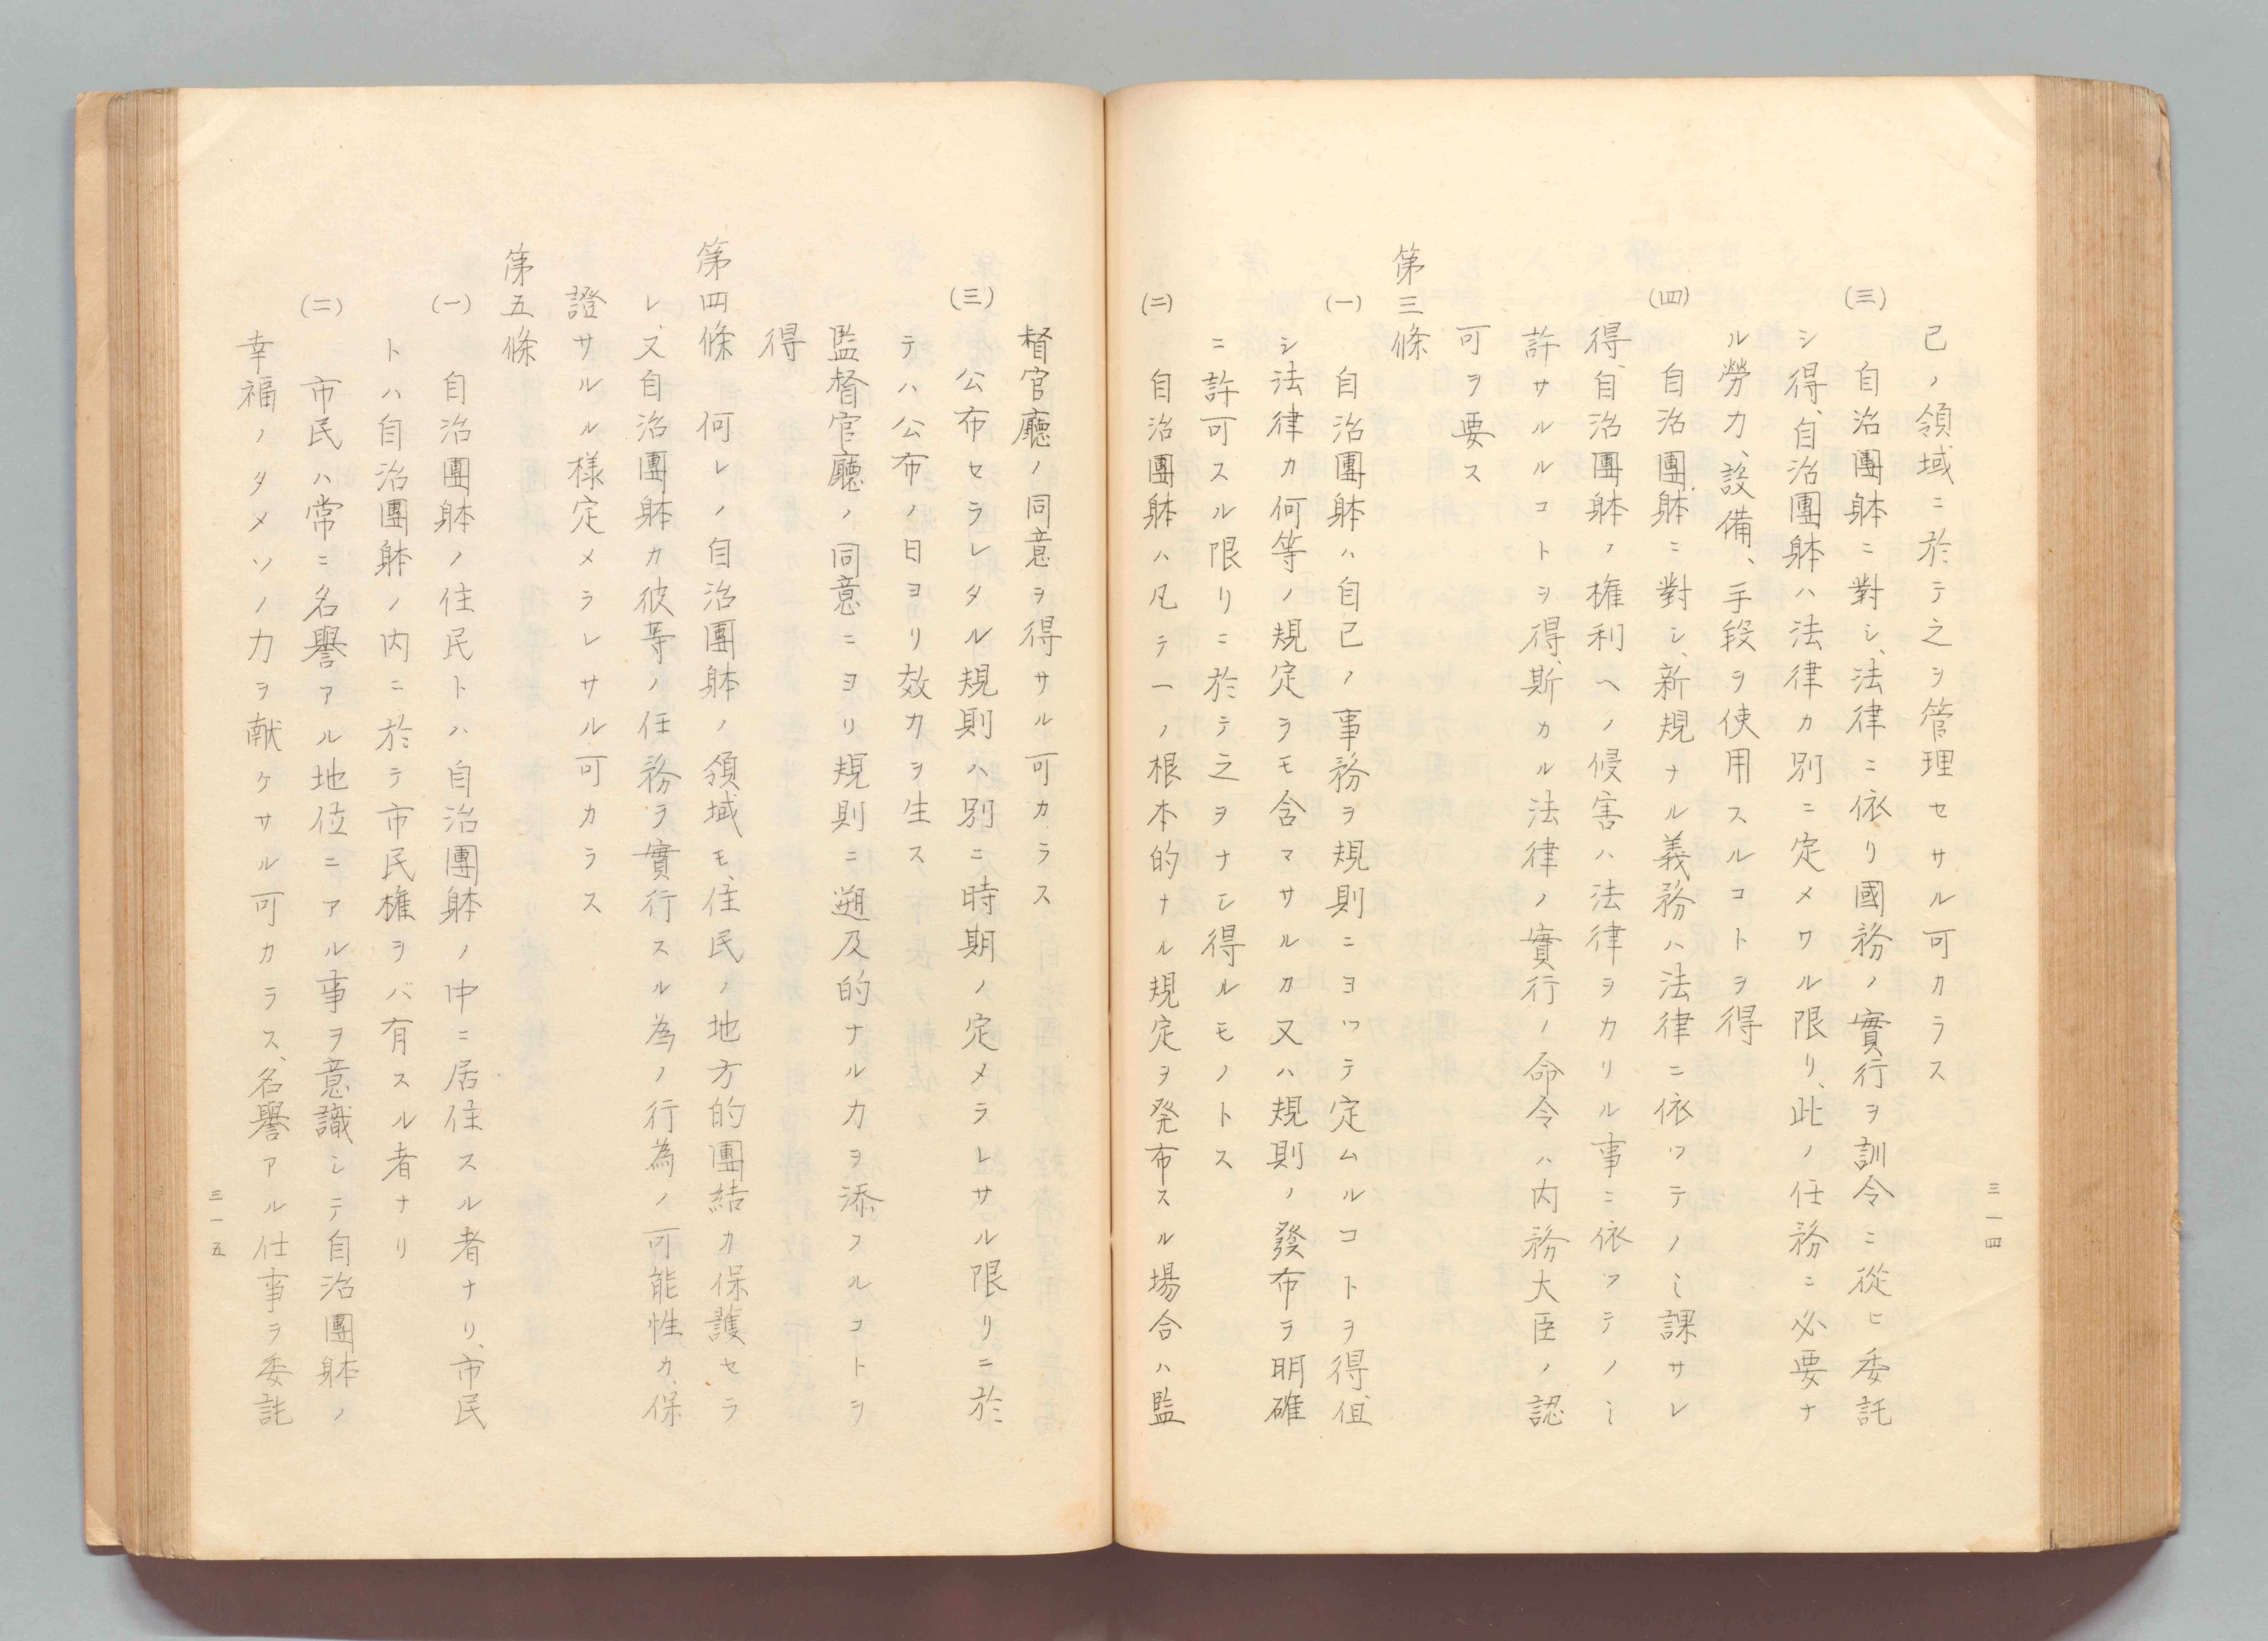 三一四
己ノ領域ニ於テ之ヲ管理セサル可カラス
(三)　自治團躰ニ對シ、法律ニ依リ國務ノ實行ヲ訓令ニ從ヒ委託
シ得、自治團躰ハ法律カ別ニ定メワル限リ、此ノ任務ニ必要ナ
ル勞力、設備、手段ヲ使用スルコトヲ得
(四)　自治團躰ニ對シ、新規ナル義務ハ法律ニ依ツテノミ課サレ
得、自治團躰ノ権利ヘノ侵害ハ法律ヲカリル事ニ依ツテノミ
許サルルコトヲ得、斯カル法律ノ實行ノ命令ハ内務大臣ノ認
可ヲ要ス
第三條
(一)　自治團躰ハ自己ノ事務ヲ規則ニヨツテ定ムルコトヲ得、但
シ法律カ何等ノ規定ヲモ含マサルカ又ハ規則ノ發布ヲ明確
ニ許可スル限リニ於テ之ヲナシ得ルモノトス
(二)　自治團躰ハ凡テ一ノ根本的ナル規定ヲ発布スル場合ハ監
督官廳ノ同意ヲ得サル可カラス
(三)　公布セラレタル規則ハ別ニ時期ノ定メラレサル限リニ於
テハ公布ノ日ヨリ效力ヲ生ス
監督官廳ノ同意ニヨリ規則ニ遡及的ナル力ヲ添フルコトヲ
得
第四條　何レノ自治團躰ノ領域モ、住民ノ地方的團結カ保護セラ
レ、又自治團躰カ彼等ノ任務ラ實行スル為ノ行為ノ可能性カ、保
證サルル様定メラレサル可カラス
第五條
(一)　自治團躰ノ住民トハ自治團躰ノ中ニ居住スル者ナリ、市民
トハ自治團躰ノ内ニ於テ市民権ヲバ有スル者ナリ
(二)　市民ハ常ニ名譽アル地位ニアル事ヲ意識シテ自治團躰ノ
幸福ノタメソノ力ヲ献ケサル可カラス、名譽アル仕事ヲ委託
三一五